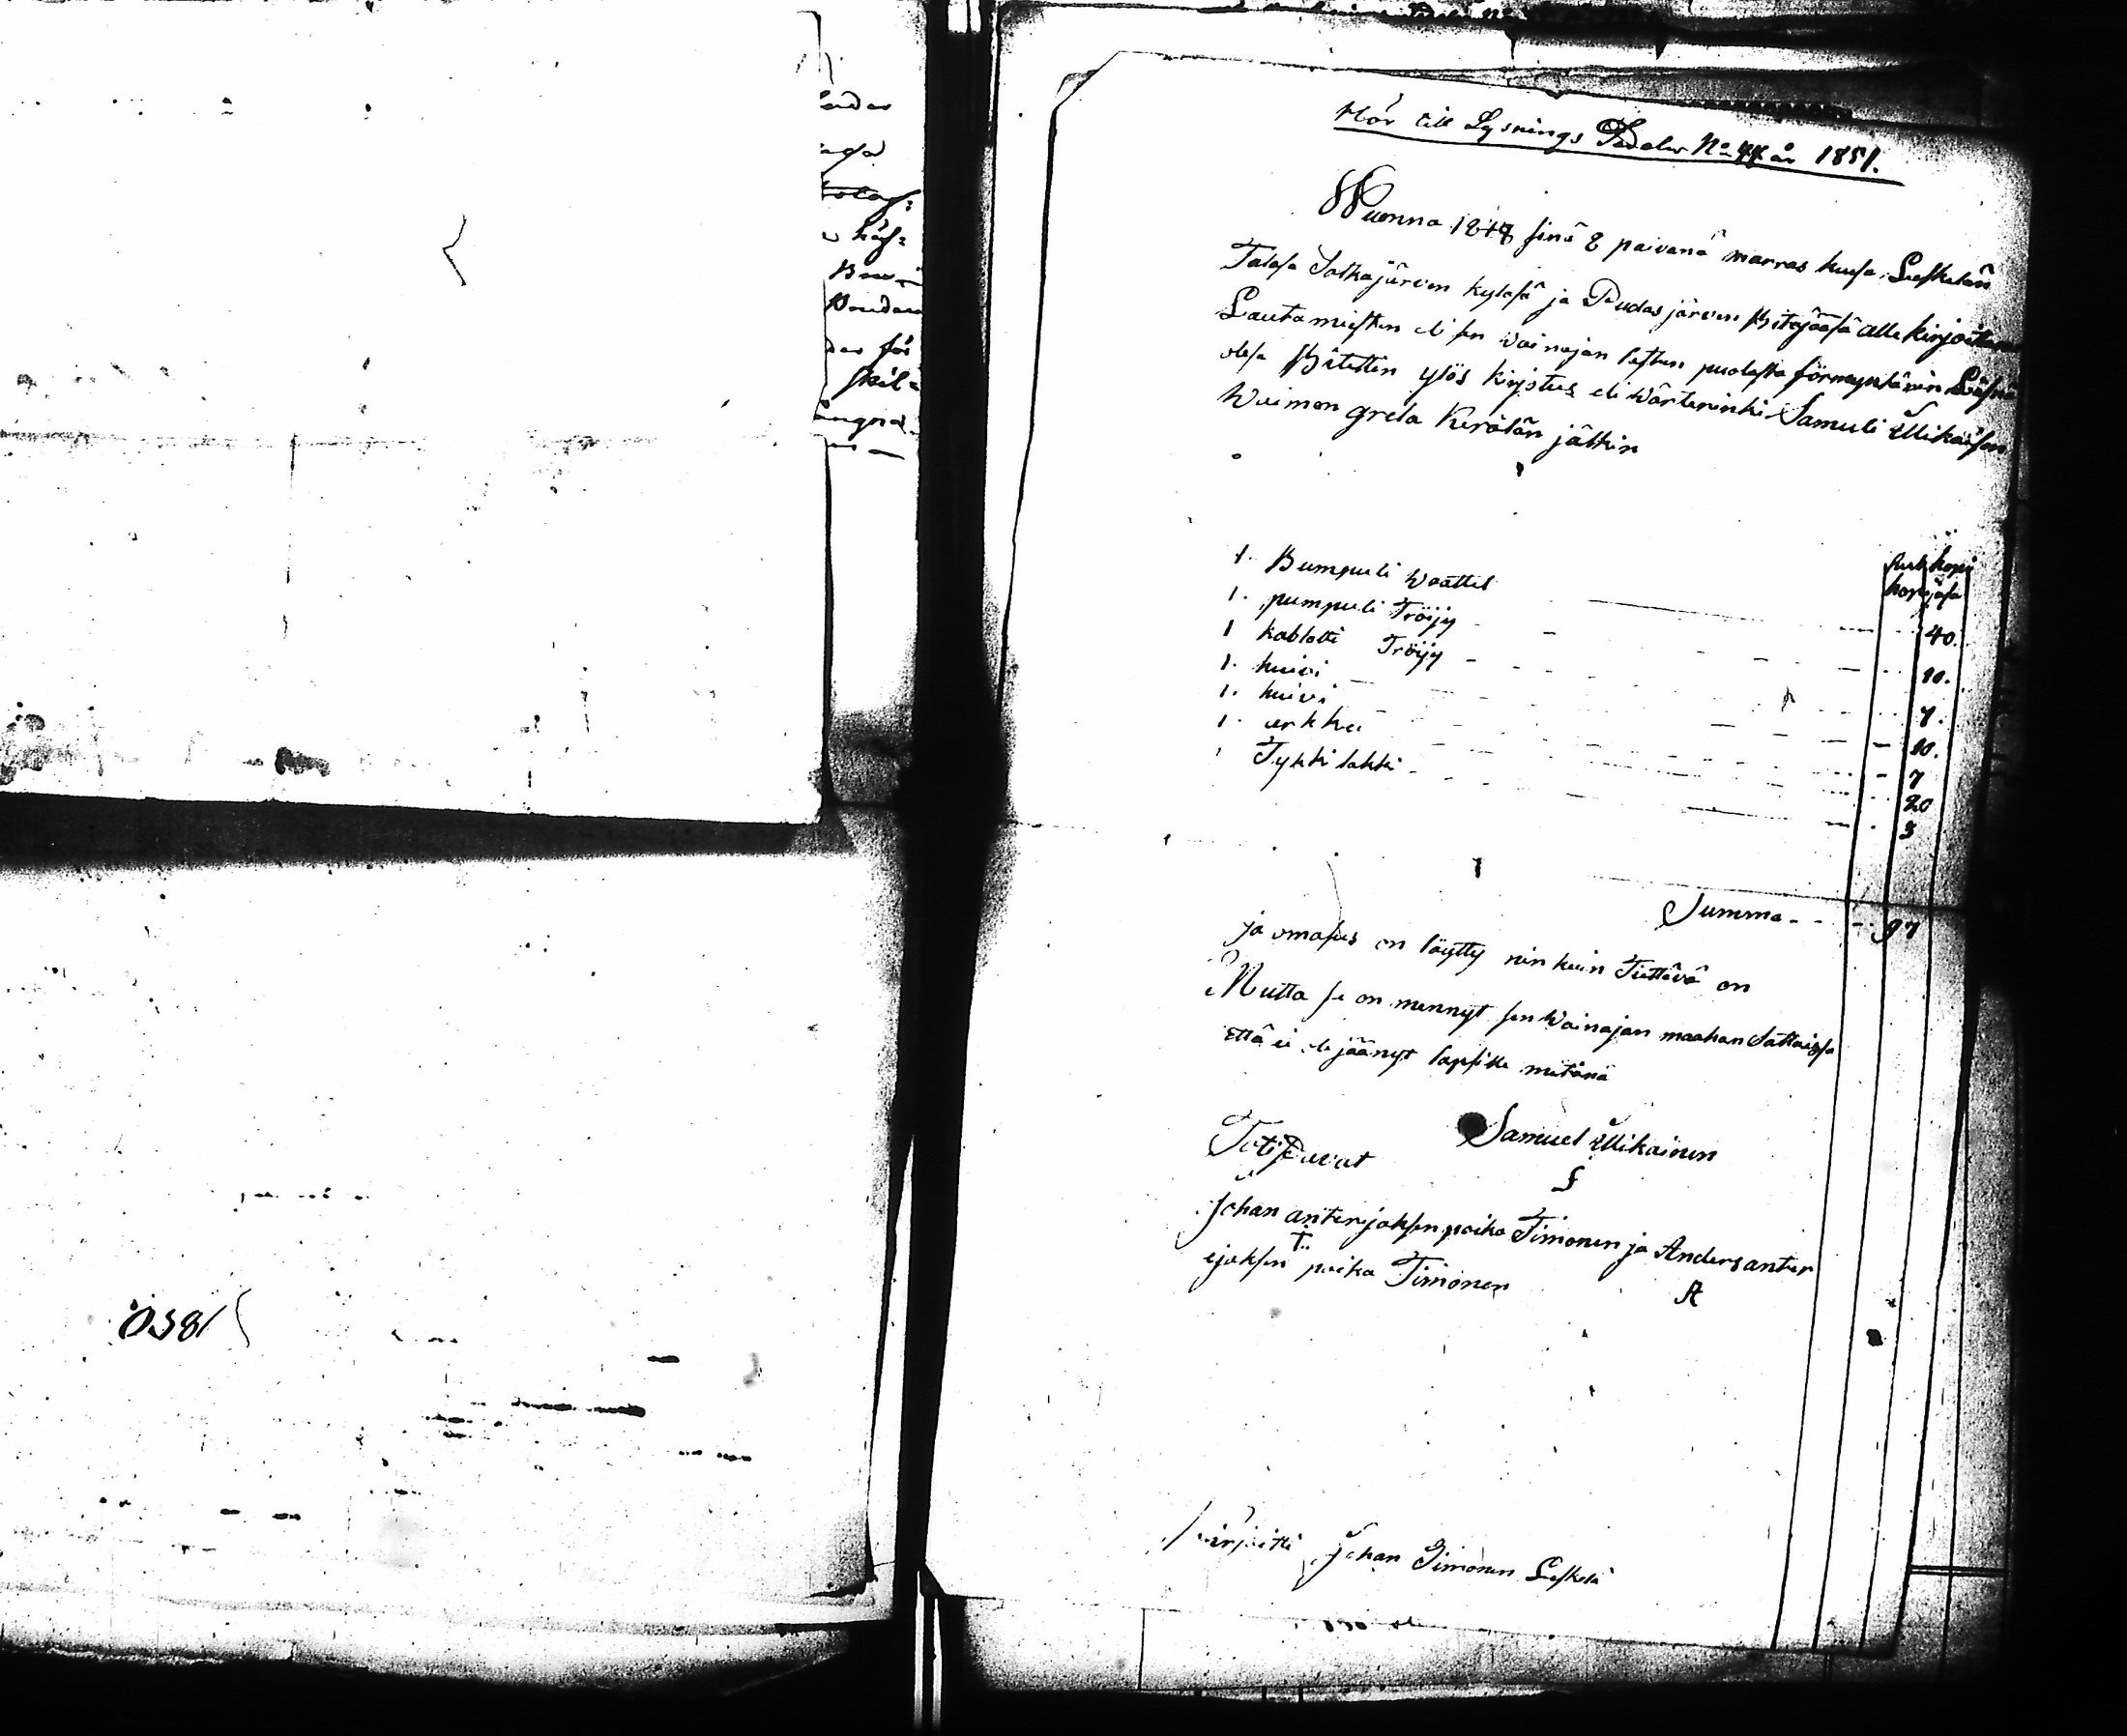 Hör till Lysnings Sedeln No 44 år 1851.
Wuonna 1848 sinä 8 päivanä marras kuusa Leskelän
Talosa Jatkojärven kyläsä ja Pudasjärven Pitäjääsä alle kirjoitetun
Lautamiesten eli sen vainajan lasten puolesta förmyntärin Läsnä
olesa Pitettin ylös kirjotus eli wärterinki Samuli Illikaisen
Waimon greta Kerälän jälkin
Rub kopi
hopijasa
1. Bumpuli Waattet 40.
1. pumpuli Tröijy 10.
1 kablotti Tröijy 7.
1. huivi 10.
1. huivi 7
1. urkku 20
Tykki lakki 3
Summa 97
ja omasus on löytty nin kuin Tiettävä on
Mutta se on mennyt sen Wainajan maahan Sattaisa
että ei ole jäänyt lapsille mitänä
Samuel Illikainen
S
Totistavat
Johan anterijaksen poika Timonen ja Anders anter
ejaksen poika Timonen
T
A
kirjoitti Johan Timonen Leskelä
1850
ndar
håf=
dar för
skil=